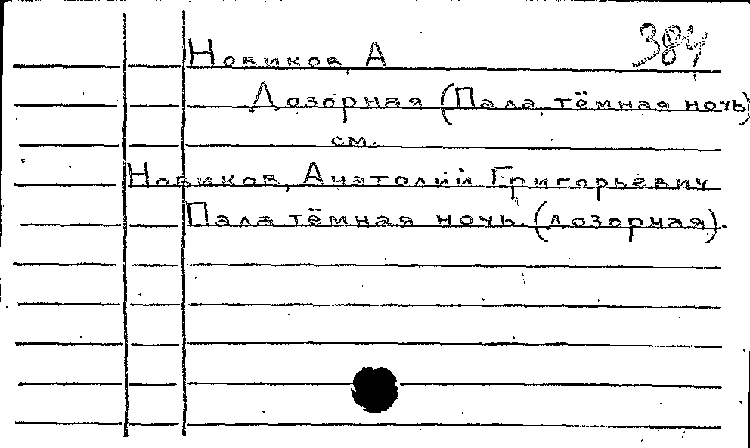 Новиков, А 384
Дозорная (Пала тёмная ночь)
см.
Новиков, Анатолий Григорьевич
Пала тёмная ночь (дозорная).